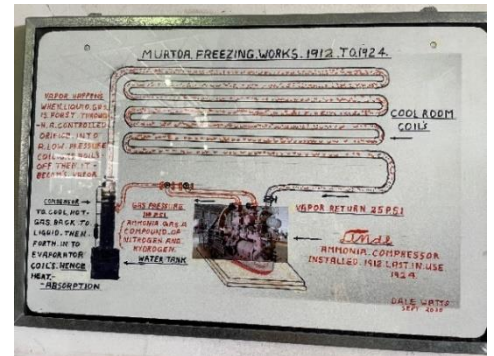 MURTOA. FREEZING. WORKS. 1912. TO. 1924.
VAPOR HAPPENS
WHEN LIQUID GAS
IS FORST THROUGH
A CONTROLLED
ORIFICE INTO
A LOW PRESSURE
COIL. IT BOILS
OFF THEN IT
BECOM'S VAPOR
COOL ROOM
COIL'S
CONDENSOR
TO COOL HOT
GAS BACK TO
LIQUID. THEN
FORTH IN TO
EVAPORATOR
COIL'S. HENCE
HEAT-
-ABSORPTION
GAS PRESSURE
PSI
AMMONIA GAS A
COMPOUND OF
NITROGEN AND
HYDROGEN.
WATER TANK
VAPOR RETURN 25 PSI
AMMONIA. COMPRESSOR
INSTALLED. 1912. LAST. IN USE
1924.
DALE WATTS
SEPT